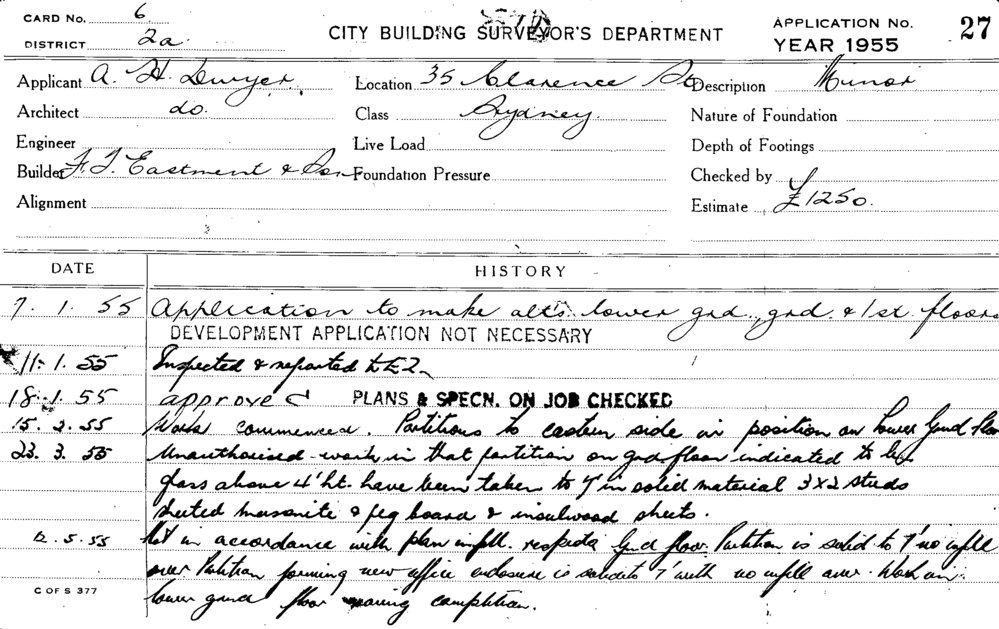 CARD No. 6
DISTRICT 2a.
CITY BUILDING SURVEYOR'S DEPARTMENT
APPLICATION No. 27
YEAR 1955
Applicant A. H. Dwyer. Location 35 Clarence St Description Minor
Architect do. Class Sydney. Nature of Foundation
Engineer Live Load Depth of Footings
Builder F. J. Eastment & Son Foundation Pressure Checked by
Alignment Estimate £1250.
DATE HISTORY
7. 1. 55 Application to make alts. lower grd., grd. & 1st floors
DEVELOPMENT APPLICATION NOT NECESSARY
11. 1. 55 Inspected & reported
18. 1. 55 approved PLANS & SPECN. ON JOB CHECKED
15. 2. 55 Work commenced. Partitions to eastern side in position on Lower Grnd Floor
23. 3. 55 Unauthorised work in that partition on grd floor indicated to be
glass above 4' ht. have been taken to 7' in solid material 3x2 studs
sheeted masonite & peg board & insulwood sheets.
12. 5. 55 Not in accordance with plan in foll. respects Grnd floor Partition is solid to 7' no infill
over Partition forming new office enclosure is solid to 7' with no infill over. Work on
lower grnd floor nearing completion.
C OF S 377